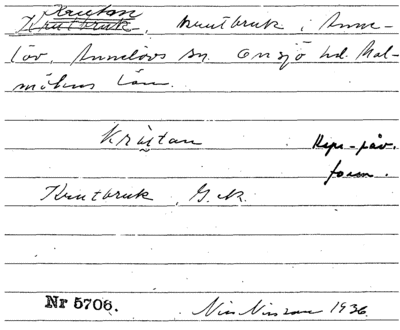 Krutbruk, krutbruk i Anne-
löv, Annelövs sn. Onsjö hd. Mal-
möhus län.
Kråtan
form.
Krutbruk, G. k.
Nr 5706. Nils Nilsson 1936.